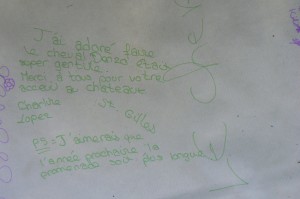 J'ai adoré faire
le cheval Danso était
super gentille.
Merci à tous pour votre
bateau à château
Charlotte
Lopez
St Gilles
PS = J'aimerais que
l'année prochaine la
promenade soit plus longue